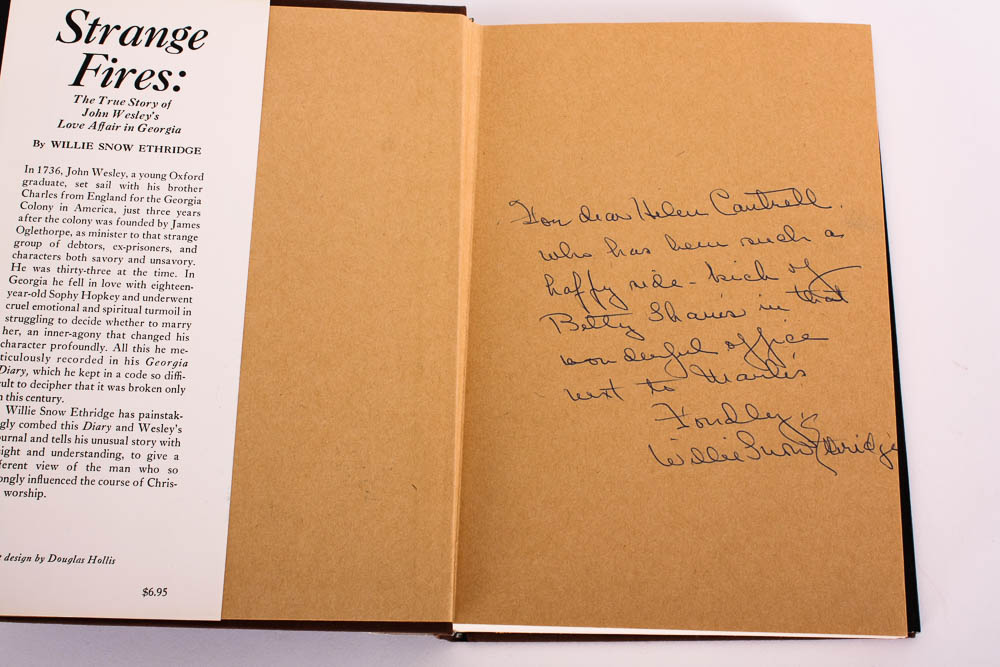 Strange
Fires:
The True Story of
John Wesley's
Love Affair in Georgia
By WILLIE SNOW ETHRIDGE
In 1736, John Wesley, a young Oxford
graduate, set sail with his brother
Charles from England for the Georgia
Colony in America, just three years
after the colony was founded by James
Oglethorpe, as minister to that strange
group of debtors, ex-prisoners, and
characters both savory and unsavory.
He was thirty-three at the time. In
Georgia he fell in love with eighteen-
year-old Sophy Hopkey and underwent
cruel emotional and spiritual turmoil in
struggling to decide whether to marry
her, an inner-agony that changed his
character profoundly. All this he me-
ticulously recorded in his Georgia
Diary, which he kept in a code so diffi-
cult to decipher that it was broken only
n this century.
Willie Snow Ethridge has painstak-
gly combed this Diary and Wesley's
urnal and tells his unusual story with
ight and understanding, to give a
ferent view of the man who so
ongly influenced the course of Chris-
worship.
design by Douglas Hollis
$6.95
For dear Helen Cantrell
who has been such a
happy side-kick of
Betty in that
wonderful office
next to
Fondly,
Willie Snow Ethridge